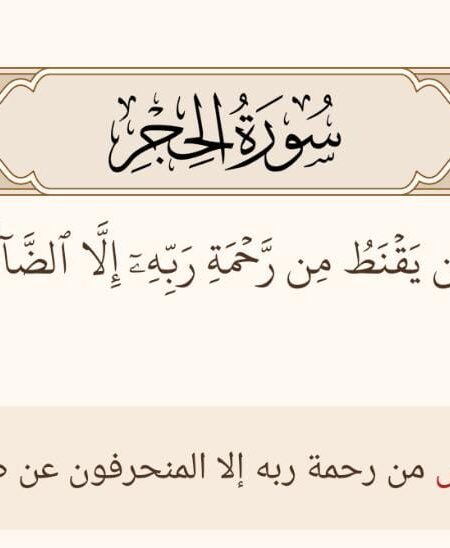 سُورَةُ الحِجْرِ
يَقْنَطُ مِن رَّحْمَةِ رَبِّهِۦٓ إِلَّا
من رحمة ربه إلا المنحرفون عن